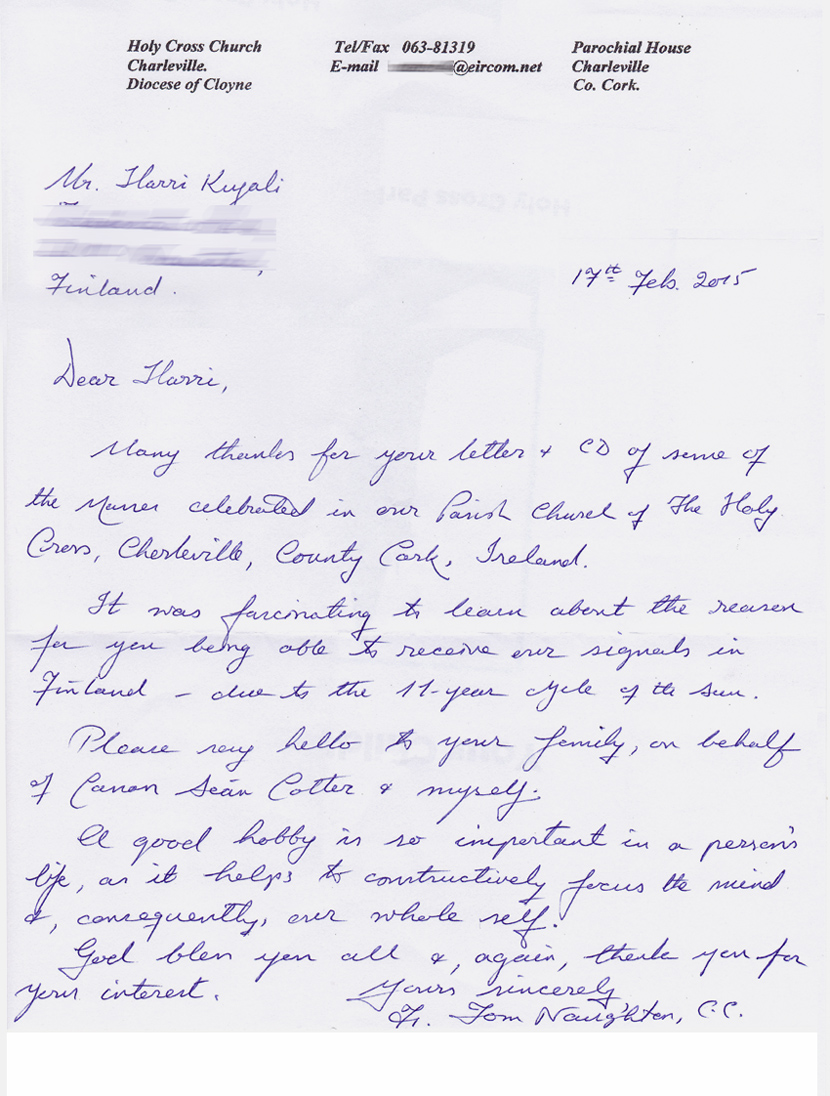 Holy Cross Church
Charleville.
Diocese of Cloyne
Tel/Fax 063-81319
E-mail @eircom.net
Parochial House
Charleville
Co. Cork.
Mr. Harri Kujali
Finland.
17th Feb. 2015
Dear Harri,
Many thanks for your letter & CD of some of
the Masses celebrated in our Parish Church of The Holy
Cross, Charleville, County Cork, Ireland.
It was fascinating to learn about the reason
for you being able to receive our signals in
Finland – due to the 11-year cycle of the sun.
Please say hello to your family, on behalf
of Canon Seán Cotter & myself.
A good hobby is so important in a person's
life, as it helps to constructively focus the mind
&, consequently, our whole self.
God bless you all &, again, thank you for
your interest.
Yours sincerely
Fr. Tom Naughton, C.C.